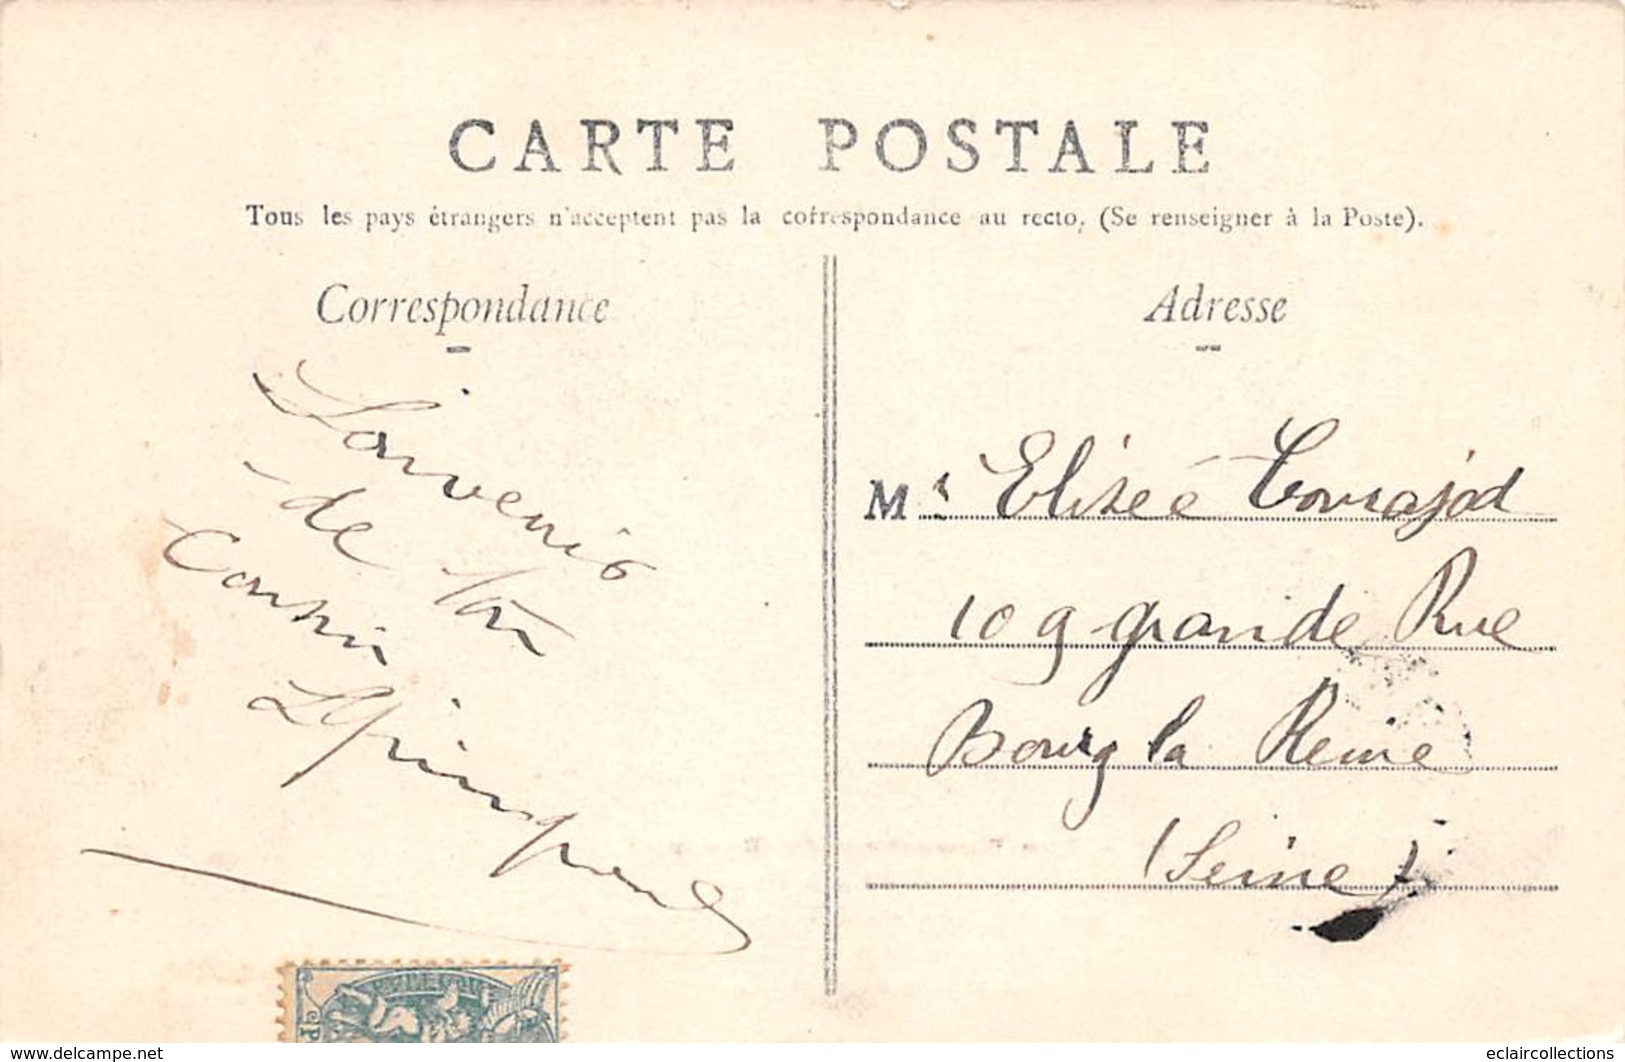 CARTE POSTALE
Tous les pays étrangers n'acceptent pas la correspondance au recto, (Se renseigner à la Poste).
Correspondance
Souvenir
de ton
Cousin
Adresse
Mr Elisée Courajod
109 grande Rue
Bourg la Reine
(Seine)
www.delcampe.net
eclaircollections